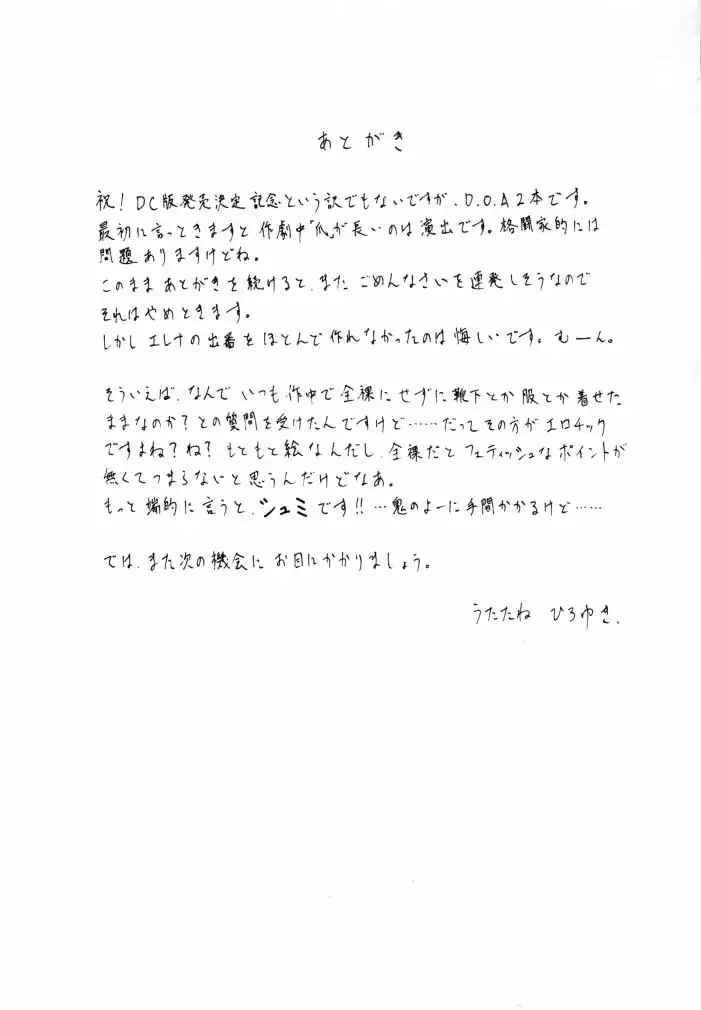 あとがき
祝！DC版発売決定記念という訳でもないですが、D.O.A2本です。
最初に言っときますと作劇中「爪」が長いのは演出です。格闘家的には
問題ありますけどね。
このままあとがきを続けると、またごめんなさいを連発しそうなので
それはやめときます。
しかしエレナの出番をほとんど作れなかったのは悔しいです。むーん。
そういえば、なんでいつも作中で全裸にせずに靴下とか服とか着せた
ままなのか？との質問を受けたんですけど……だってその方がエロチック
ですまね？ね？もともと絵なんだし、全裸だとフェティッシュなポイントが
無くてつまらないと思うんだけどなあ。
もっと端的に言うと、シュミです!!…鬼のよーに手間かかるけど……
では、また次の機会にお目にかかりましょう。
うたたね ひろゆき.